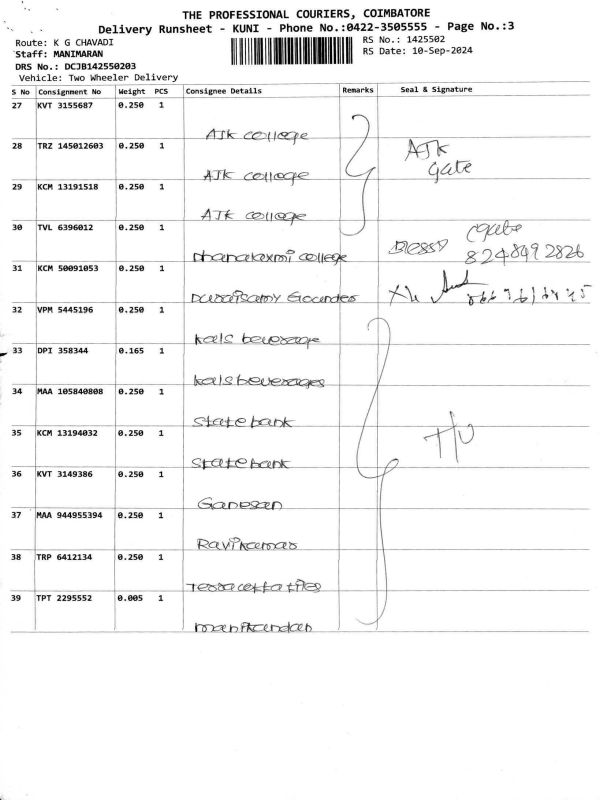 THE PROFESSIONAL COURIERS, COIMBATORE
Delivery Runsheet - KUNI - Phone No.:0422-3505555 - Page No.:3
Route: K G CHAVADI
RS No.: 1425502
Staff: MANIMARAN
RS Date: 10-Sep-2024
DRS No.: DCJB142550203
Vehicle: Two Wheeler Delivery
S No Consignment No Weight PCS Consignee Details Remarks Seal & Signature
27 KVT 3155687 0.250 1
AJK college
28 TRZ 145012603 0.250 1
AJK college
AJK
Gate
29 KCM 13191518 0.250 1
AJK college
30 TVL 6396012 0.250 1
Dhanalaxmi college
Gate
8248492826
31 KCM 50091053 0.250 1
Duraisamy Gounder
32 VPM 5445196 0.250 1
kals beverage
33 DPI 358344 0.165 1
kals beverages
34 MAA 105840808 0.250 1
State bank
35 KCM 13194032 0.250 1
State bank
36 KVT 3149386 0.250 1
Ganesan
37 MAA 944955394 0.250 1
Ravikumar
38 TRP 6412134 0.250 1
Terracotta tiles
39 TPT 2295552 0.005 1
manikandan